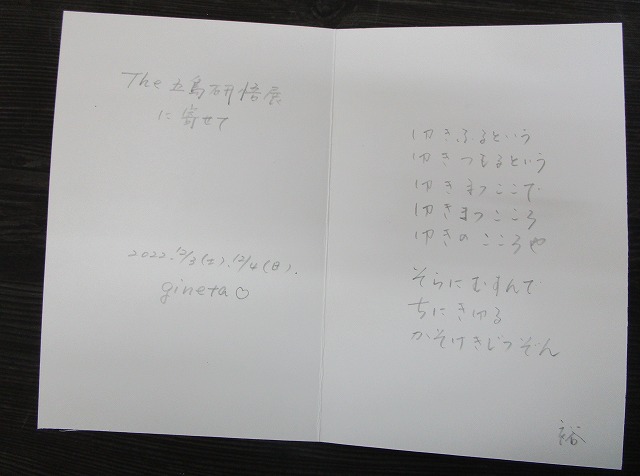 The 五島研悟展
に寄せて
2022.12/3(土).12/4(日).
gineta♡
ゆきふるという
ゆきつもるという
ゆきまつここで
ゆきまつこころ
ゆきのこころや
そらにむすんで
ちにきゆる
かそけきじつぞん
裕